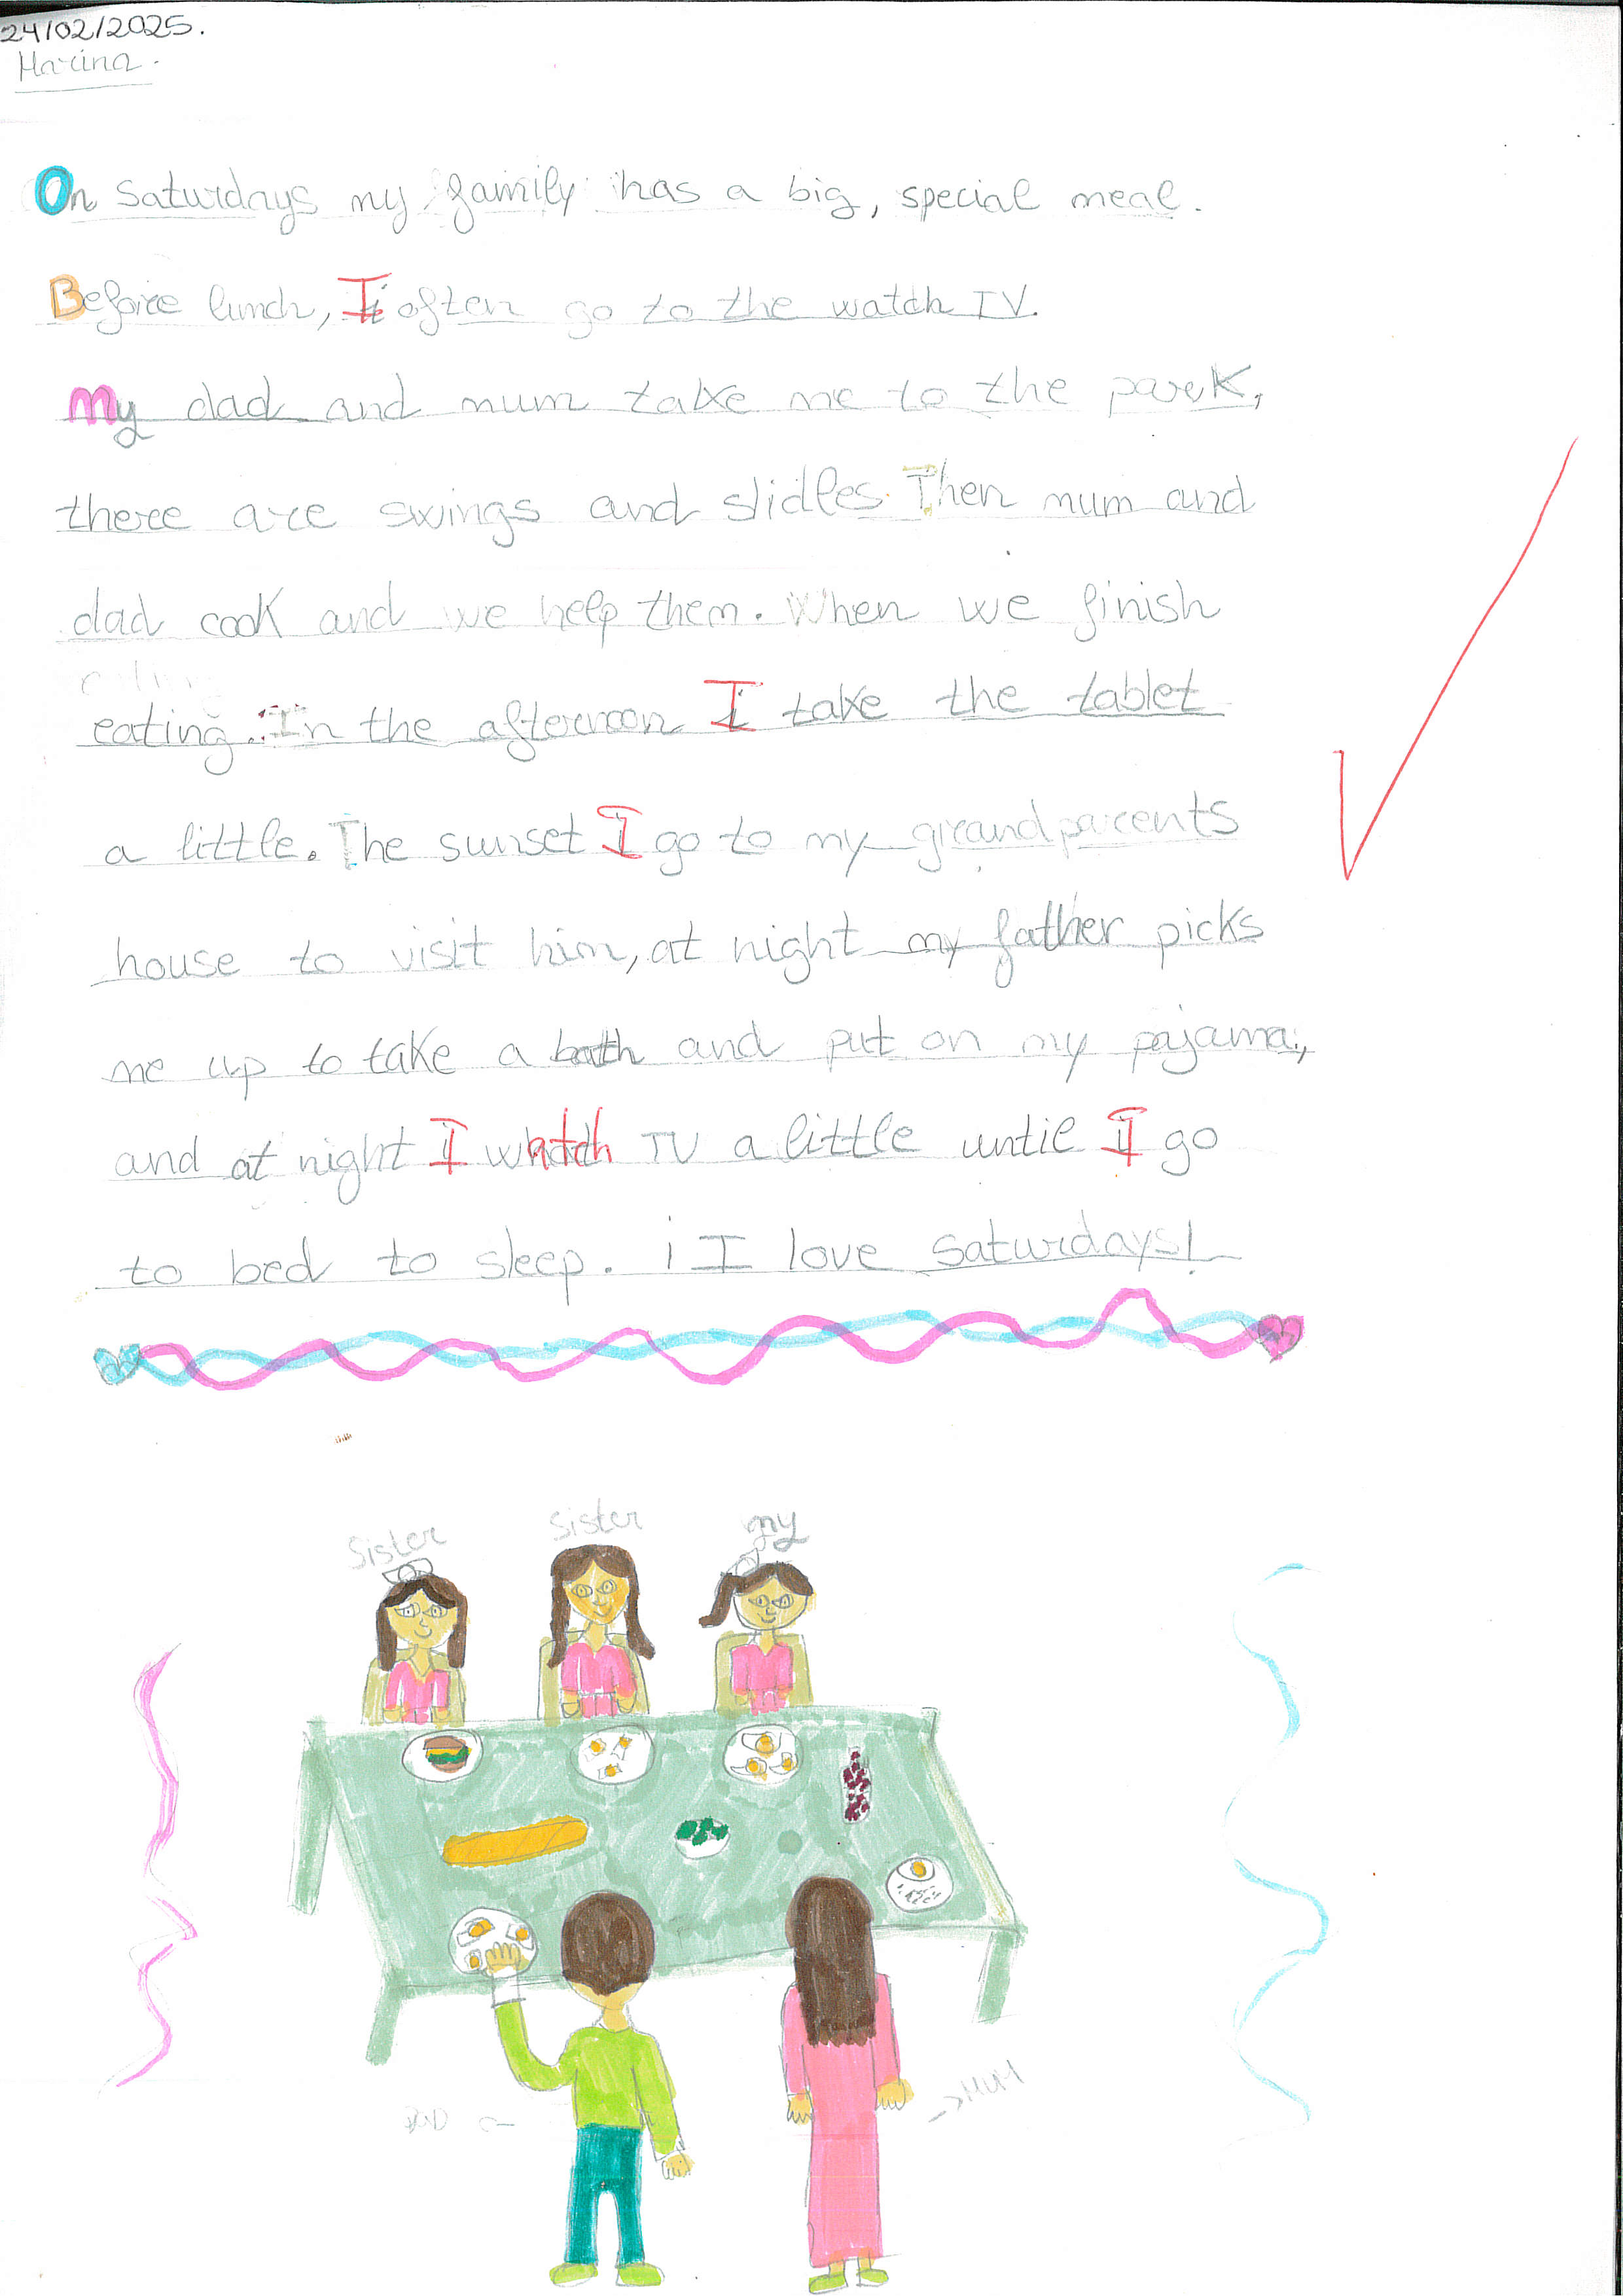 24/02/2025.
Marina.
On saturdays my family has a big, special meal.
Before lunch, I often go to the watch TV.
My dad and mum take me to the park,
there are swings and slidles. Then mum and
dad cook and we help them. When we finish
eating. In the afternoon I take the tablet
a little. The sunset I go to my grandparents
house to visit him, at night my father picks
me up to take a bath and put on my pajama,
and at night I watch TV a little until I go
to bed to sleep. ¡ I love saturdays!
Sister sister my
DAD MUM